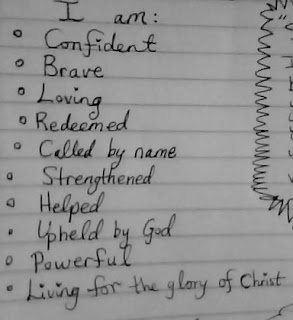 I am:
• Confident
• Brave
• Loving
• Redeemed
• Called by name
• Strengthened
• Helped
• Upheld by God
• Powerful
• Living for the glory of Christ